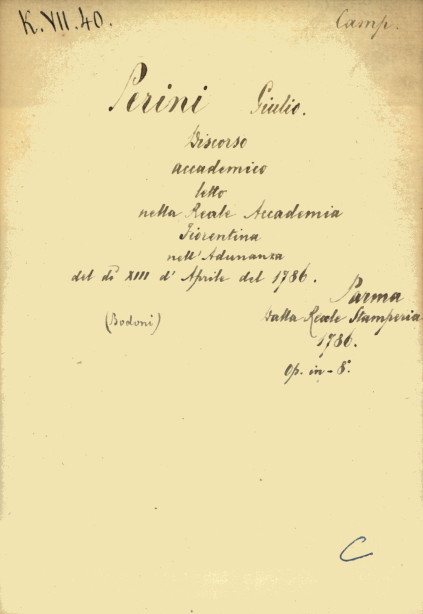 K. VII. 40.
Camp.
Perini Giulio.
Discorso
accademico
letto
nella Reale Accademia
Fiorentina
nell'Adunanza
del dì XIII d'Aprile del 1786.
Parma
Dalla Reale Stamperia
1786.
(Bodoni)
op. in-8°.
C